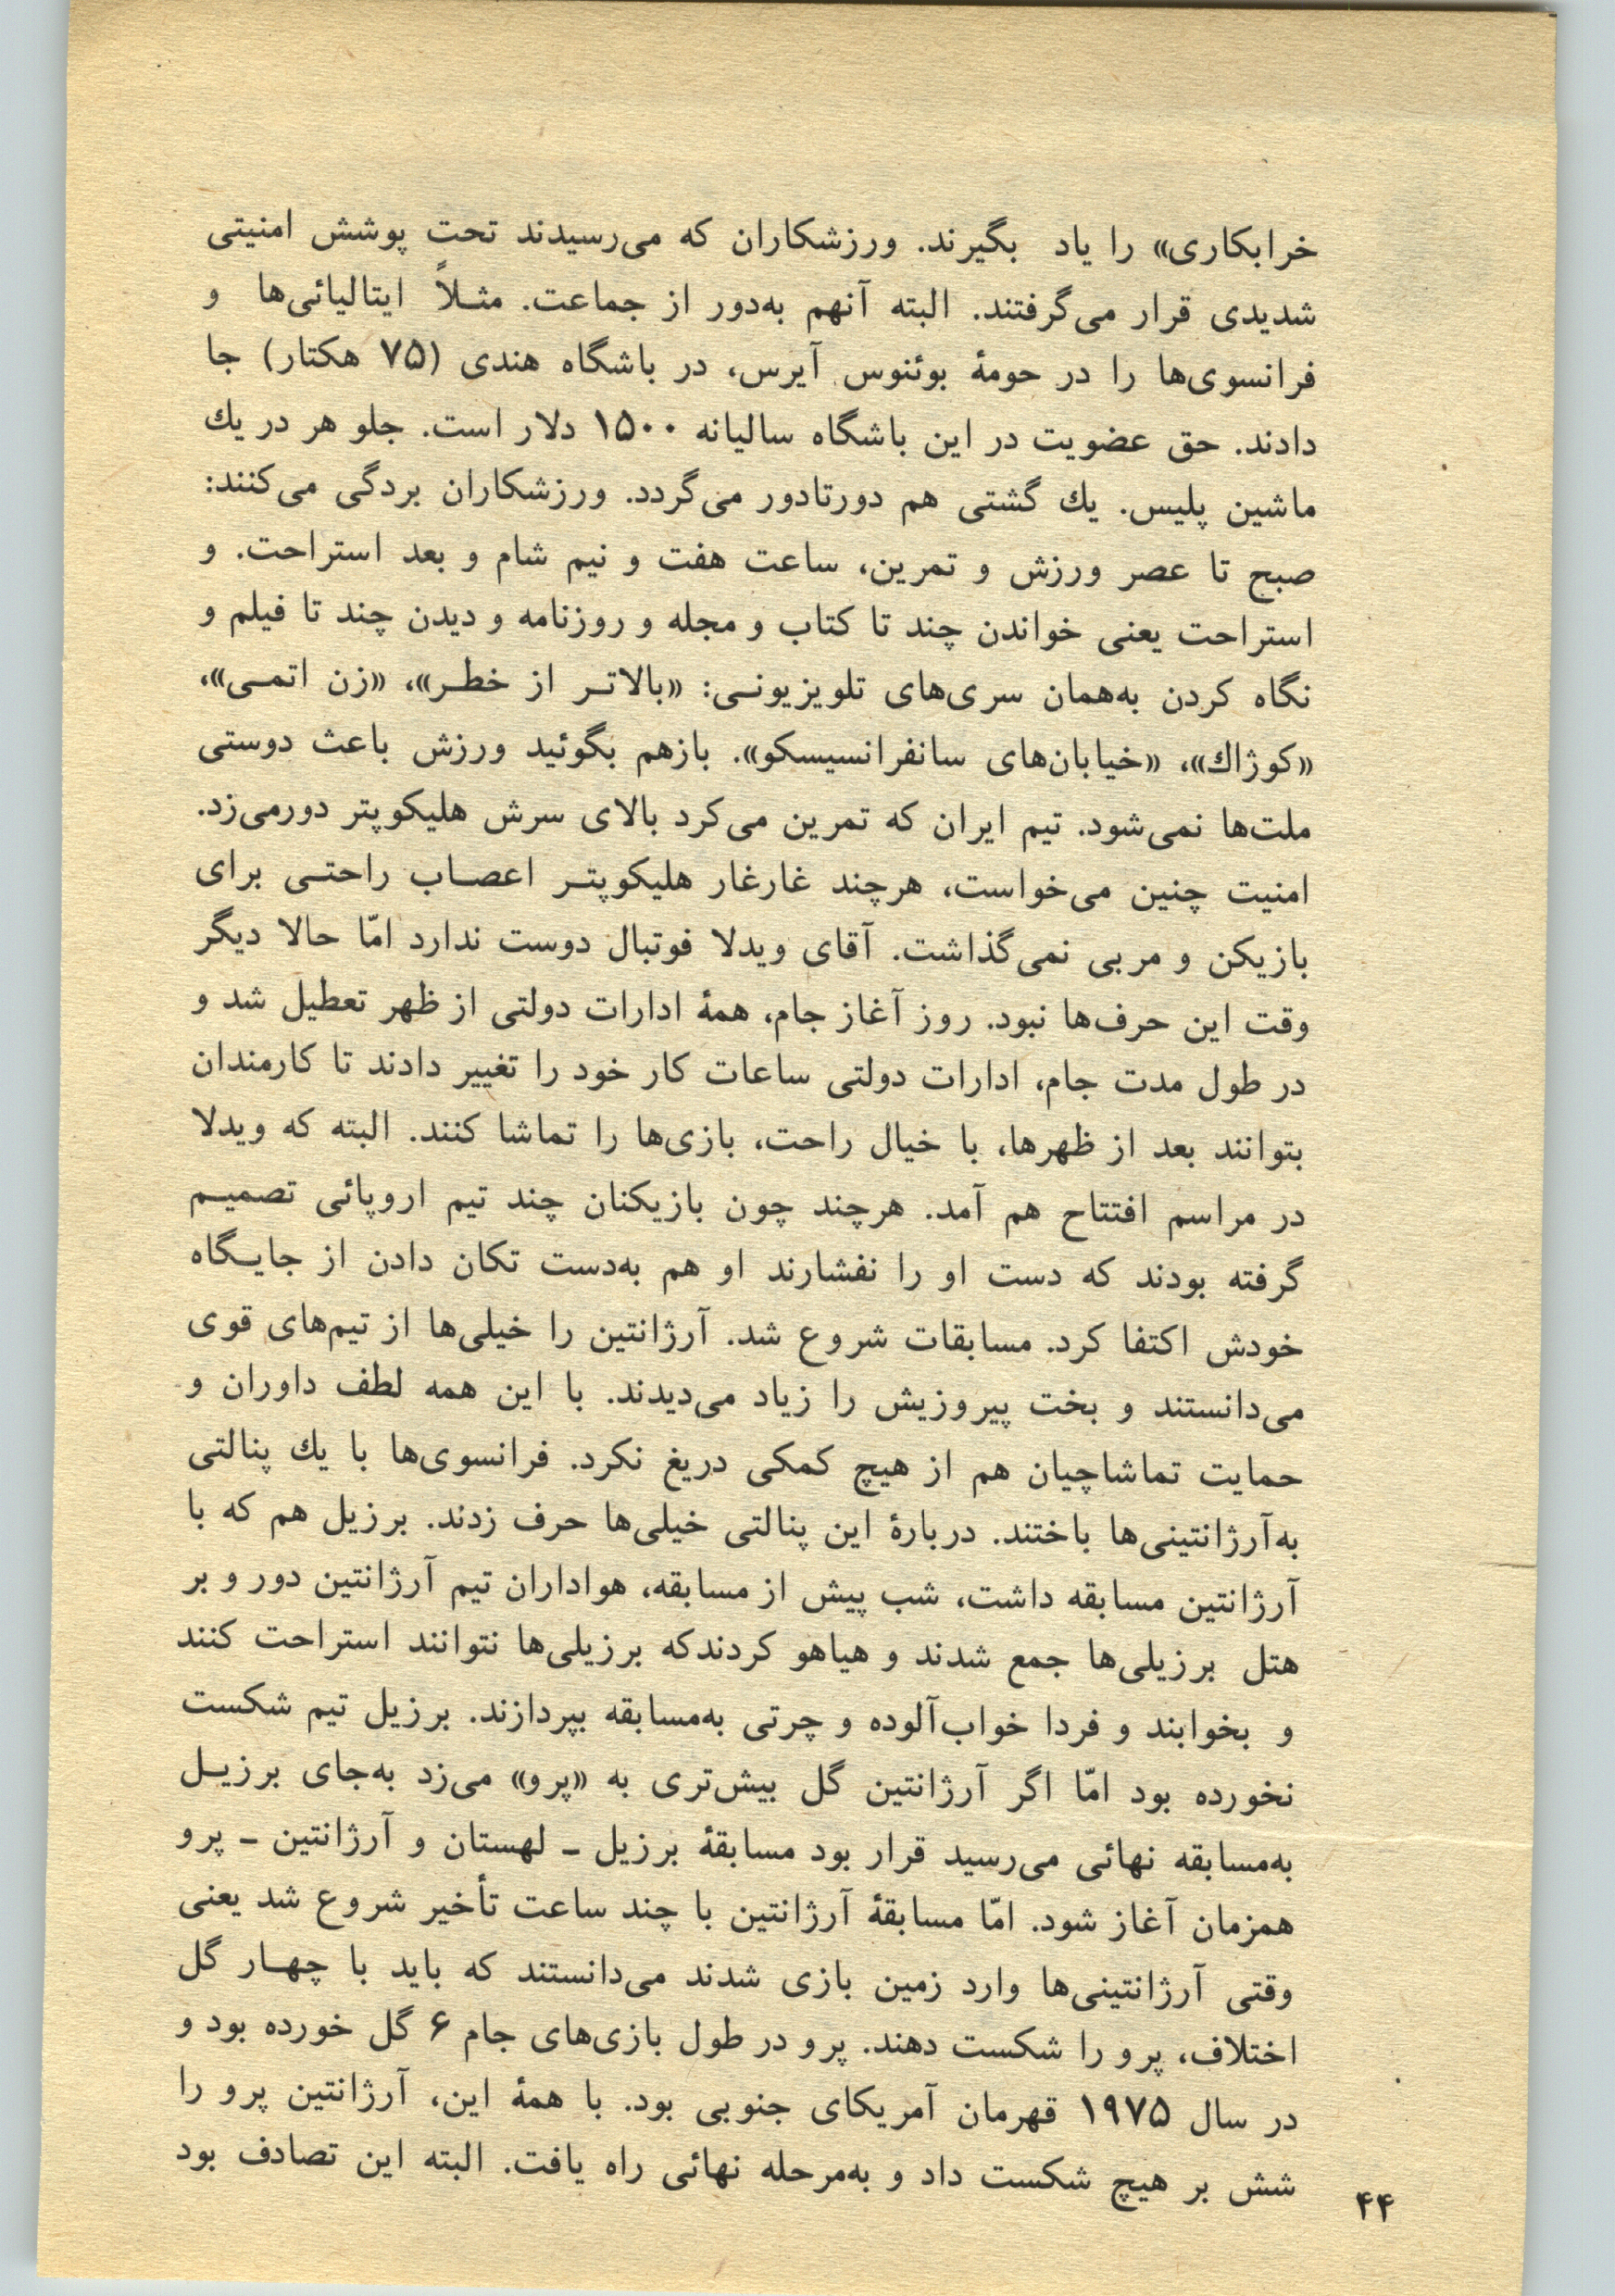 خرابکاری» را یاد بگیرند. ورزشکاران که می‌رسیدند تحت پوشش امنیتی
شدیدی قرار می‌گرفتند. البته آنهم به‌دور از جماعت. مثلاً ایتالیائی‌ها و
فرانسوی‌ها را در حومهٔ بوئنوس آیرس، در باشگاه هندی (۷۵ هکتار) جا
دادند. حق عضویت در این باشگاه سالیانه ۱۵۰۰ دلار است. جلو هر در یك
ماشین پلیس. یك گشتی هم دورتادور می‌گردد. ورزشکاران بردگی می‌کنند:
صبح تا عصر ورزش و تمرین، ساعت هفت و نیم شام و بعد استراحت. و
استراحت یعنی خواندن چند تا کتاب و مجله و روزنامه و دیدن چند تا فیلم و
نگاه کردن به‌همان سری‌های تلویزیونی: «بالاتر از خطر»، «زن اتمی»،
«کوژاك»، «خیابان‌های سانفرانسیسکو». بازهم بگوئید ورزش باعث دوستی
ملت‌ها نمی‌شود. تیم ایران که تمرین می‌کرد بالای سرش هلیکوپتر دورمی‌زد.
امنیت چنین می‌خواست، هرچند غارغار هلیکوپتر اعصاب راحتی برای
بازیکن و مربی نمی‌گذاشت. آقای ویدلا فوتبال دوست ندارد امّا حالا دیگر
وقت این حرف‌ها نبود. روز آغاز جام، همهٔ ادارات دولتی از ظهر تعطیل شد و
در طول مدت جام، ادارات دولتی ساعات کار خود را تغییر دادند تا کارمندان
بتوانند بعد از ظهرها، با خیال راحت، بازی‌ها را تماشا کنند. البته که ویدلا
در مراسم افتتاح هم آمد. هرچند چون بازیکنان چند تیم اروپائی تصمیم
گرفته بودند که دست او را نفشارند او هم به‌دست تکان دادن از جایگاه
خودش اکتفا کرد. مسابقات شروع شد. آرژانتین را خیلی‌ها از تیم‌های قوی
می‌دانستند و بخت پیروزیش را زیاد می‌دیدند. با این همه لطف داوران و
حمایت تماشاچیان هم از هیچ کمکی دریغ نکرد. فرانسوی‌ها با یك پنالتی
به‌آرژانتینی‌ها باختند. دربارهٔ این پنالتی خیلی‌ها حرف زدند. برزیل هم که با
آرژانتین مسابقه داشت، شب پیش از مسابقه، هواداران تیم آرژانتین دور و بر
هتل برزیلی‌ها جمع شدند و هیاهو کردندکه برزیلی‌ها نتوانند استراحت کنند
و بخوابند و فردا خواب‌آلوده و چرتی به‌مسابقه بپردازند. برزیل تیم شکست
نخورده بود امّا اگر آرژانتین گل بیش‌تری به «پرو» می‌زد به‌جای برزیل
به‌مسابقه نهائی می‌رسید قرار بود مسابقهٔ برزیل ـ لهستان و آرژانتین ـ پرو
همزمان آغاز شود. امّا مسابقهٔ آرژانتین با چند ساعت تأخیر شروع شد یعنی
وقتی آرژانتینی‌ها وارد زمین بازی شدند می‌دانستند که باید با چهار گل
اختلاف، پرو را شکست دهند. پرو در طول بازی‌های جام ۶ گل خورده بود و
در سال ۱۹۷۵ قهرمان آمریکای جنوبی بود. با همهٔ این، آرژانتین پرو را
شش بر هیچ شکست داد و به‌مرحله نهائی راه یافت. البته این تصادف بود
۴۴